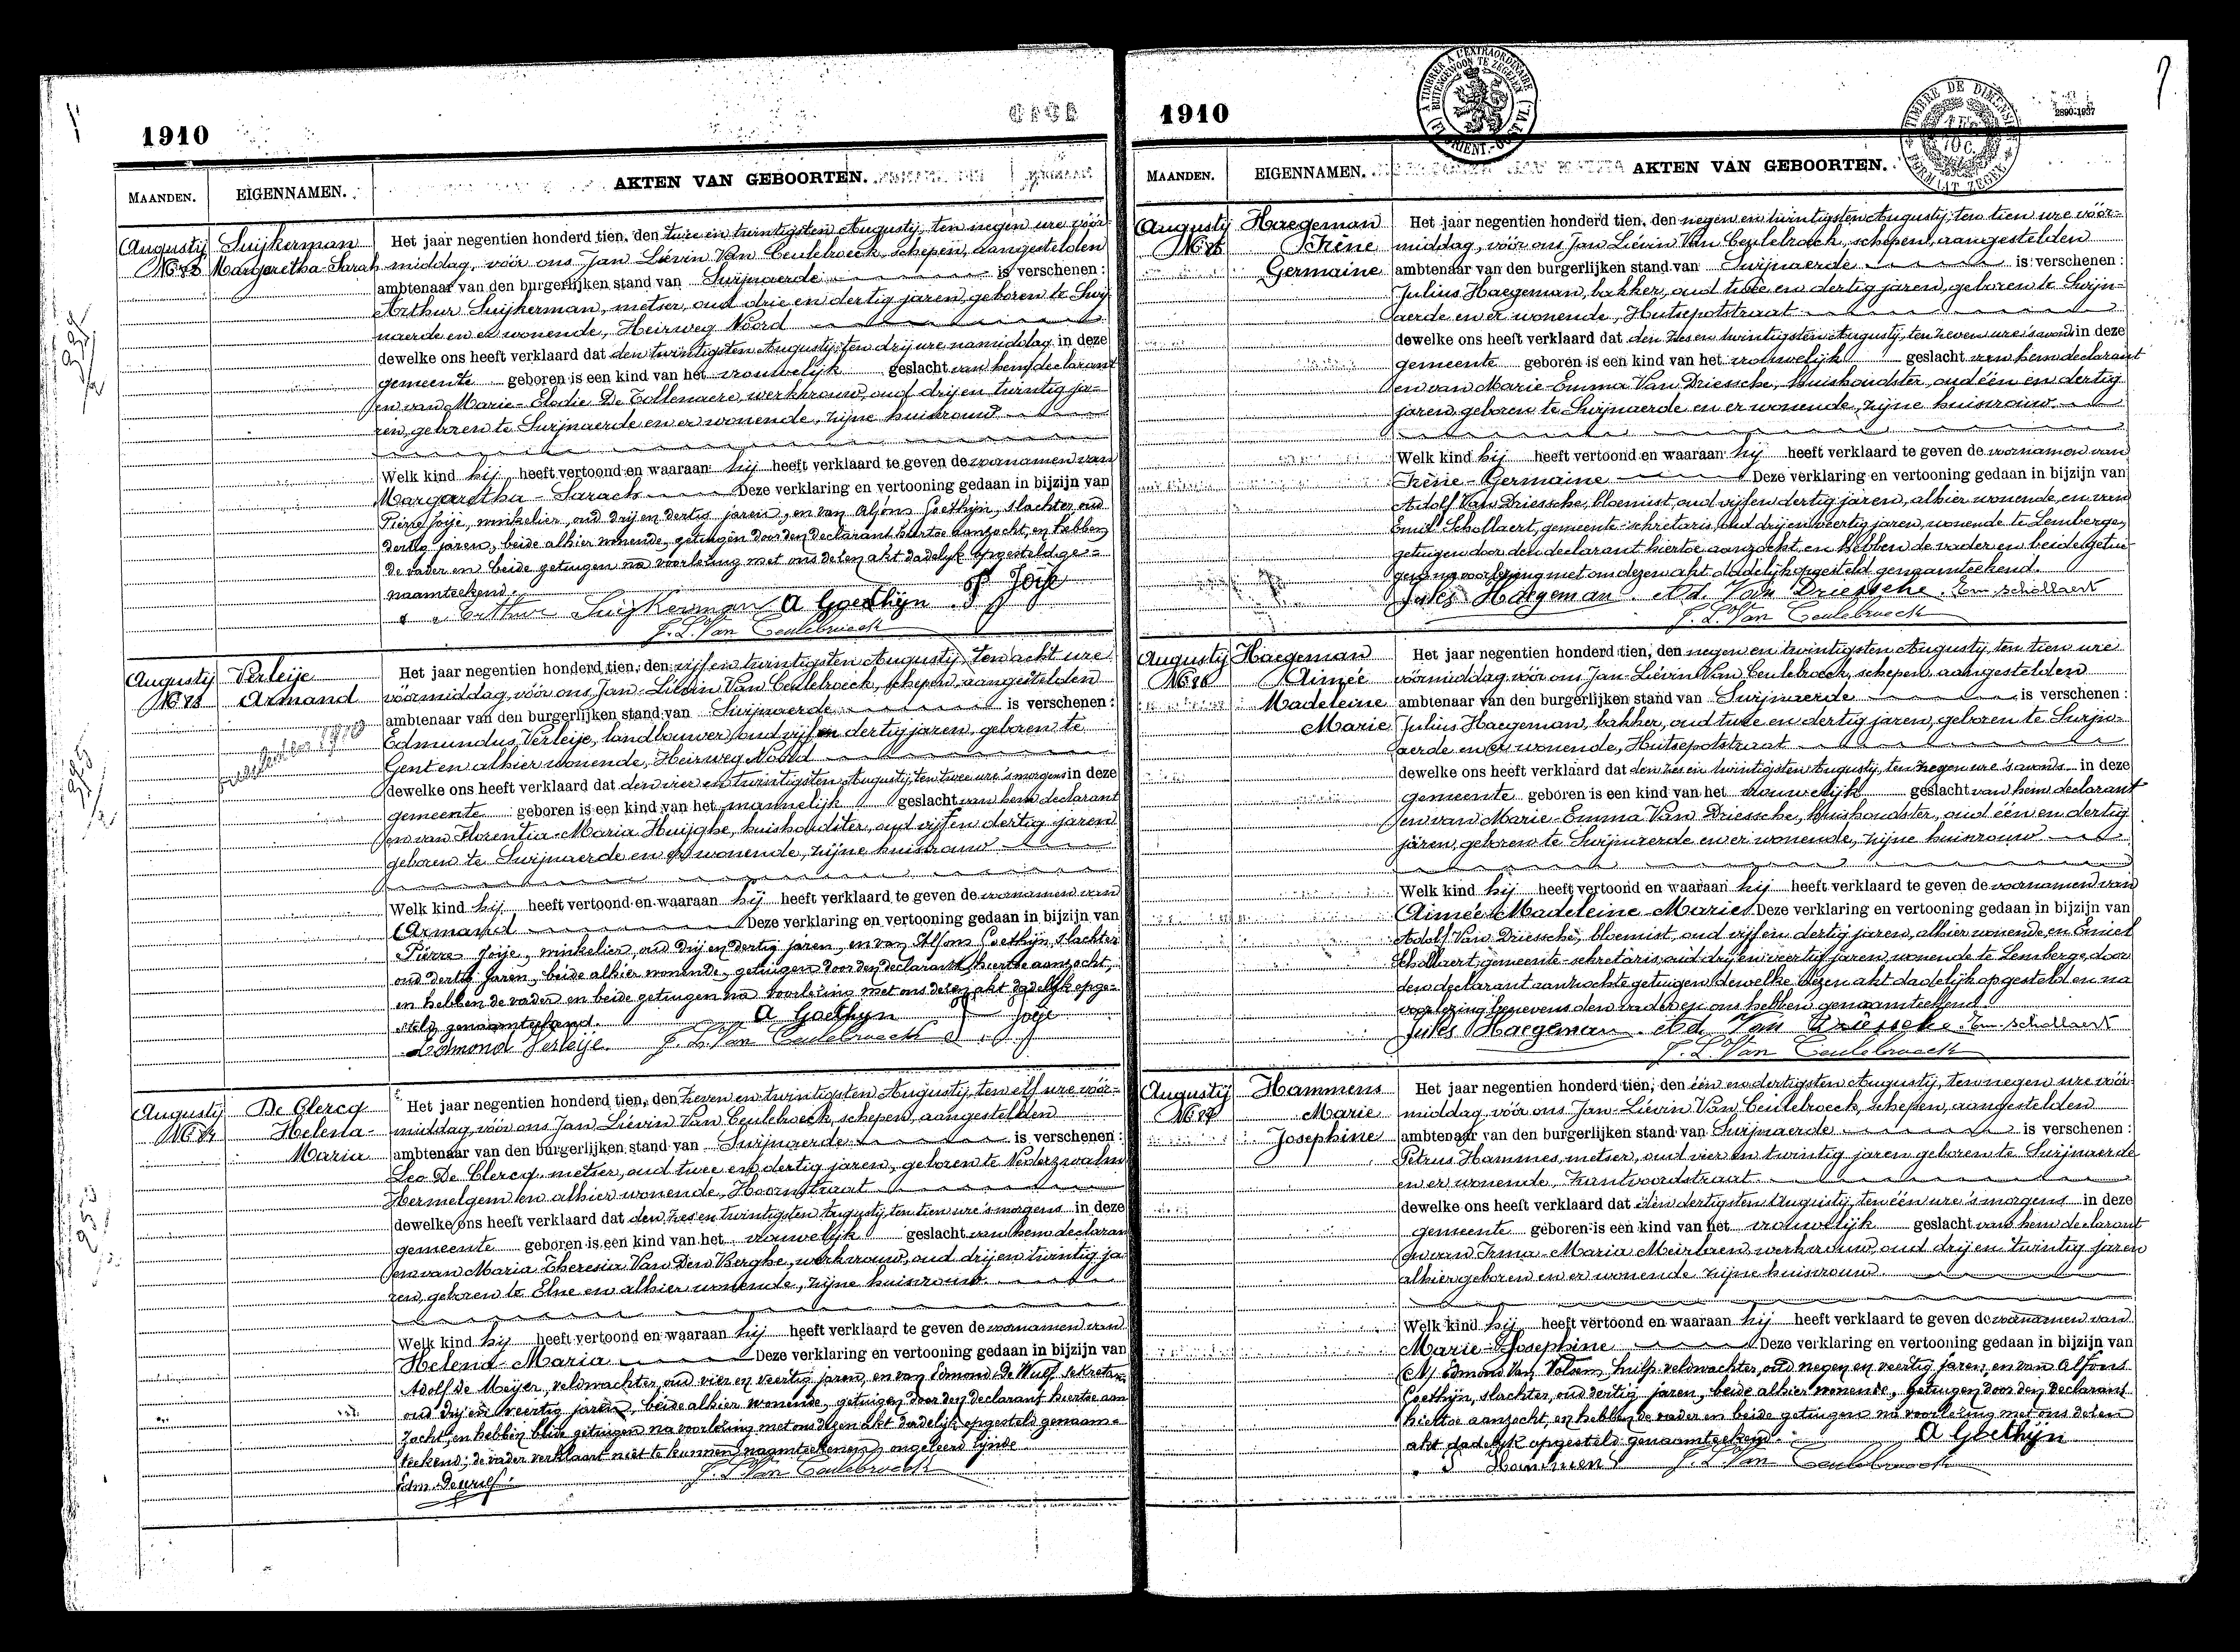 1910
MAANDEN. EIGENNAMEN. AKTEN VAN GEBOORTEN.
Augustij Suijkerman
No 82 Margaretha-Sarah
Het jaar negentien honderd tien, den twee en twintigsten Augustij, ten negen ure vóór-
middag, vóór ons Jan Liévin Van Ceulebroeck, schepen, aangestelden
ambtenaar van den burgerlijken stand van Swijnaerde is verschenen:
Arthur Suijkerman, metser, oud drie en dertig jaren, geboren te Swij-
naerde en er wonende, Heirweg Noord
dewelke ons heeft verklaard dat den twintigsten Augustij, ten drij ure namiddag in deze
gemeente geboren is een kind van het vrouwelijk geslacht van hem declarant
en van Marie-Elodie De Tollenaere, werkvrouw, oud drij en twintig ja-
ren, geboren te Swijnaerde en er wonende, zijne huisvrouw
Welk kind hij heeft vertoond en waaraan hij heeft verklaard te geven de voornamen van
Margaretha-Sarach Deze verklaring en vertooning gedaan in bijzijn van
Pierre Joije, winkelier, oud drij en dertig jaren, en van Alfons Goethijn, slachter, oud
dertig jaren, beide alhier wonende, getuigen door den declarant hiertoe aanzocht, en hebben
de vader en beide getuigen na voorlezing met ons dezen akt dadelijk opgesteld ge-
naamteekend.
Arthur Suijkerman A Goethijn P Joije
J. L. Van Ceulebroeck
Augustij Verleije
No 83 Armand
Het jaar negentien honderd tien, den vijf en twintigsten Augustij, ten acht ure
vóórmiddag, vóór ons Jan-Liévin Van Ceulebroeck, schepen, aangestelden
ambtenaar van den burgerlijken stand van Swijnaerde is verschenen:
Edmundus Verleije, landbouwer, oud vijf en dertig jaren, geboren te
Gent en alhier wonende, Heirweg Noord
dewelke ons heeft verklaard dat den vier en twintigsten Augustij, ten twee ure 's morgens in deze
gemeente geboren is een kind van het mannelijk geslacht van hem declarant
en van Florentia-Maria Huijghe, huishoudster, oud vijf en dertig jaren
geboren te Swijnaerde en er wonende, zijne huisvrouw
Welk kind hij heeft vertoond en waaraan hij heeft verklaard te geven de voornamen van
Armand Deze verklaring en vertooning gedaan in bijzijn van
Pierre Joije, winkelier, oud drij en dertig jaren, en van Alfons Goethijn, slachter
oud dertig jaren, beide alhier wonende, getuigen door den declarant hiertoe aanzocht,
en hebben de vader en beide getuigen na voorlezing met ons dezen akt dadelijk opge-
steld genaamteekend. A Goethyn P Joije
Edmond Verleije. J. L. Van Ceulebroeck
Augustij De Clercq
No 84 Helena-
Maria
Het jaar negentien honderd tien, den zeven en twintigsten Augustij, ten elf ure vóór-
middag, vóór ons Jan Liévin Van Ceulebroeck, schepen, aangestelden
ambtenaar van den burgerlijken stand van Swijnaerde is verschenen:
Leo De Clercq, metser, oud twee en dertig jaren, geboren te Nederzwalm
Hermelgem en alhier wonende, Hoornstraat
dewelke ons heeft verklaard dat den zes en twintigsten Augustij, ten tien ure 's morgens in deze
gemeente geboren is een kind van het vrouwelijk geslacht van hem declarant
en van Maria Theresia Van Den Berghe, werkvrouw, oud drij en twintig ja-
ren, geboren te Elne en alhier wonende, zijne huisvrouw.
Welk kind hij heeft vertoond en waaraan hij heeft verklaard te geven de voornamen van
Helena-Maria Deze verklaring en vertooning gedaan in bijzijn van
Adolf de Meijer, veldwachter, oud vier en veertig jaren, en van Edmond De Wulf, sekretaris
oud drij en veertig jaren, beide alhier wonende, getuigen door den declarant hiertoe aan-
zocht, en hebben beide getuigen na voorlezing met ons dezen akt dadelijk opgesteld genaam-
teekend; de vader verklaart niet te kunnen naamteekenen, ongeleerd zijnde
Edm. Dewulf. J. L. Van Ceulebroeck
1910
MAANDEN. EIGENNAMEN. AKTEN VAN GEBOORTEN.
Augustij Haegeman
No 85 Irène
Germaine
Het jaar negentien honderd tien, den negen en twintigsten Augustij, ten tien ure vóór-
middag, vóór ons Jan Liévin Van Ceulebroeck, schepen, aangestelden
ambtenaar van den burgerlijken stand van Swijnaerde is verschenen:
Julius Haegeman, bakker, oud twee en dertig jaren, geboren te Swijn-
aerde en er wonende, Hutsepotstraat
dewelke ons heeft verklaard dat den zes en twintigsten Augustij, ten zeven ure 's avonds in deze
gemeente geboren is een kind van het vrouwelijk geslacht van hem declarant
en van Marie-Emma Van Driessche, huishoudster, oud één en dertig
jaren, geboren te Swijnaerde en er wonende, zijne huisvrouw
Welk kind hij heeft vertoond en waaraan hij heeft verklaard te geven de voornamen van
Irène-Germaine Deze verklaring en vertooning gedaan in bijzijn van
Adolf Van Driessche, bloemist, oud vijf en dertig jaren, alhier wonende, en van
Emiel Schollaert, gemeente-sekretaris, oud drij en veertig jaren, wonende te Lemberge,
getuigen door den declarant hiertoe aanzocht en hebben de vader en beide getui-
gen na voorlezing met ons dezen akt dadelijk opgesteld genaamteekend.
Jules Haegeman Ad. Van Driessche Em. Schollaert
J. L. Van Ceulebroeck
Augustij Haegeman
No 86 Aimée
Madeleine
Marie
Het jaar negentien honderd tien, den negen en twintigsten Augustij, ten tien ure
vóórmiddag, vóór ons Jan-Liévin Van Ceulebroeck, schepen, aangestelden
ambtenaar van den burgerlijken stand van Swijnaerde is verschenen:
Julius Haegeman, bakker, oud twee en dertig jaren, geboren te Swijn-
aerde en er wonende, Hutsepotstraat
dewelke ons heeft verklaard dat den zes en twintigsten Augustij, ten negen ure 's avonds in deze
gemeente geboren is een kind van het vrouwelijk geslacht van hem declarant
en van Marie-Emma Van Driessche, huishoudster, oud één en dertig
jaren, geboren te Swijnaerde en er wonende, zijne huisvrouw
Welk kind hij heeft vertoond en waaraan hij heeft verklaard te geven de voornamen van
Aimée-Madeleine-Marie. Deze verklaring en vertooning gedaan in bijzijn van
Adolf Van Driessche, bloemist, oud vijf en dertig jaren, alhier wonende, en Emiel
Schollaert, gemeente-sekretaris, oud drij en veertig jaren, wonende te Lemberge, door
den declarant aanzochte getuigen, dewelke dezen akt dadelijk opgesteld en na
voorlezing benevens den vader en ons hebben genaamteekend.
Jules Haegeman Ad. Van Driessche Em. Schollaert
J. L. Van Ceulebroeck
Augustij Hammens
No 87 Marie
Josephine
Het jaar negentien honderd tien, den één en dertigsten Augustij, ten negen ure vóór-
middag, vóór ons Jan-Liévin Van Ceulebroeck, schepen, aangestelden
ambtenaar van den burgerlijken stand van Swijnaerde is verschenen:
Petrus Hammes, metser, oud vier en twintig jaren, geboren te Swijnaerde
en er wonende, Zantvoordstraat
dewelke ons heeft verklaard dat den dertigsten Augustij, ten één ure 's morgens in deze
gemeente geboren is een kind van het vrouwelijk geslacht van hem declarant
en van Irma-Maria Meirlaen, werkvrouw, oud drij en twintig jaren
alhier geboren en er wonende zijne huisvrouw.
Welk kind hij heeft vertoond en waaraan hij heeft verklaard te geven de voornamen van
Marie-Josephine Deze verklaring en vertooning gedaan in bijzijn van
Edmond Van Volsem, hulp-veldwachter, oud negen en veertig jaren, en van Alfons
Goethijn, slachter, oud dertig jaren, beide alhier wonende, getuigen door den declarant
hiertoe aanzocht, en hebben de vader en beide getuigen na voorlezing met ons dezen
akt dadelijk opgesteld genaamteekend. A Goethijn
P Hammens J. L. Van Ceulebroeck